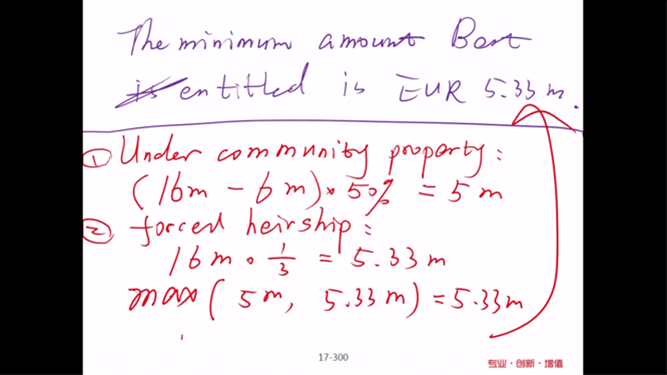 The minimum amount Bart
is entitled is EUR 5.33 m.
① Under community property:
(16m - 6m) * 50% = 5 m
② forced heirship:
16 m * 1/3 = 5.33 m
max( 5m, 5.33 m) = 5.33m
17-300
专业·创新·增值